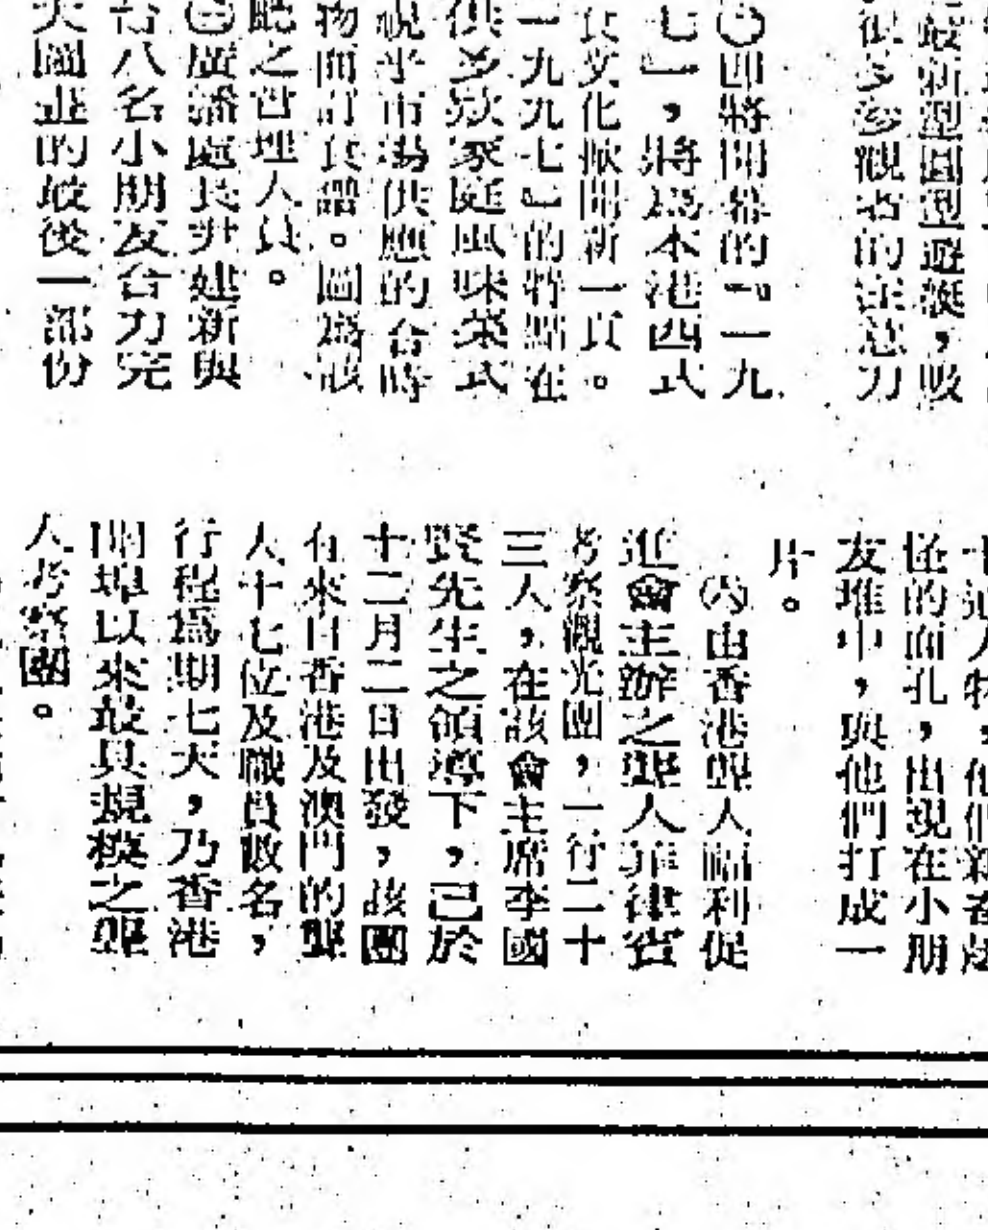 最新型圓型遊艇，吸
很多參觀者的注意力
㊀即將開幕的「一九
七」，將爲本港西式
食文化掀開新一頁。
一九九七」的特點在
供多款家庭風味菜式
視乎市場供應的合時
物而訂食譜。圖爲該
之管理人員。
㊁廣播處長尹建新與
八名小朋友合力完
的最後一部份
的面孔，出現在小朋
友堆中，與他們打成一
片。
㈥由香港聾人福利促
進會主辦之聾人菲律賓
考察觀光團，一行二十
三人，在該會主席李國
賢先生之領導下，已於
十二月二日出發，該團
有來自香港及澳門的聾
人十七位及職員數名，
行程爲期七天，乃香港
開埠以來最具規模之聾
人考察團。